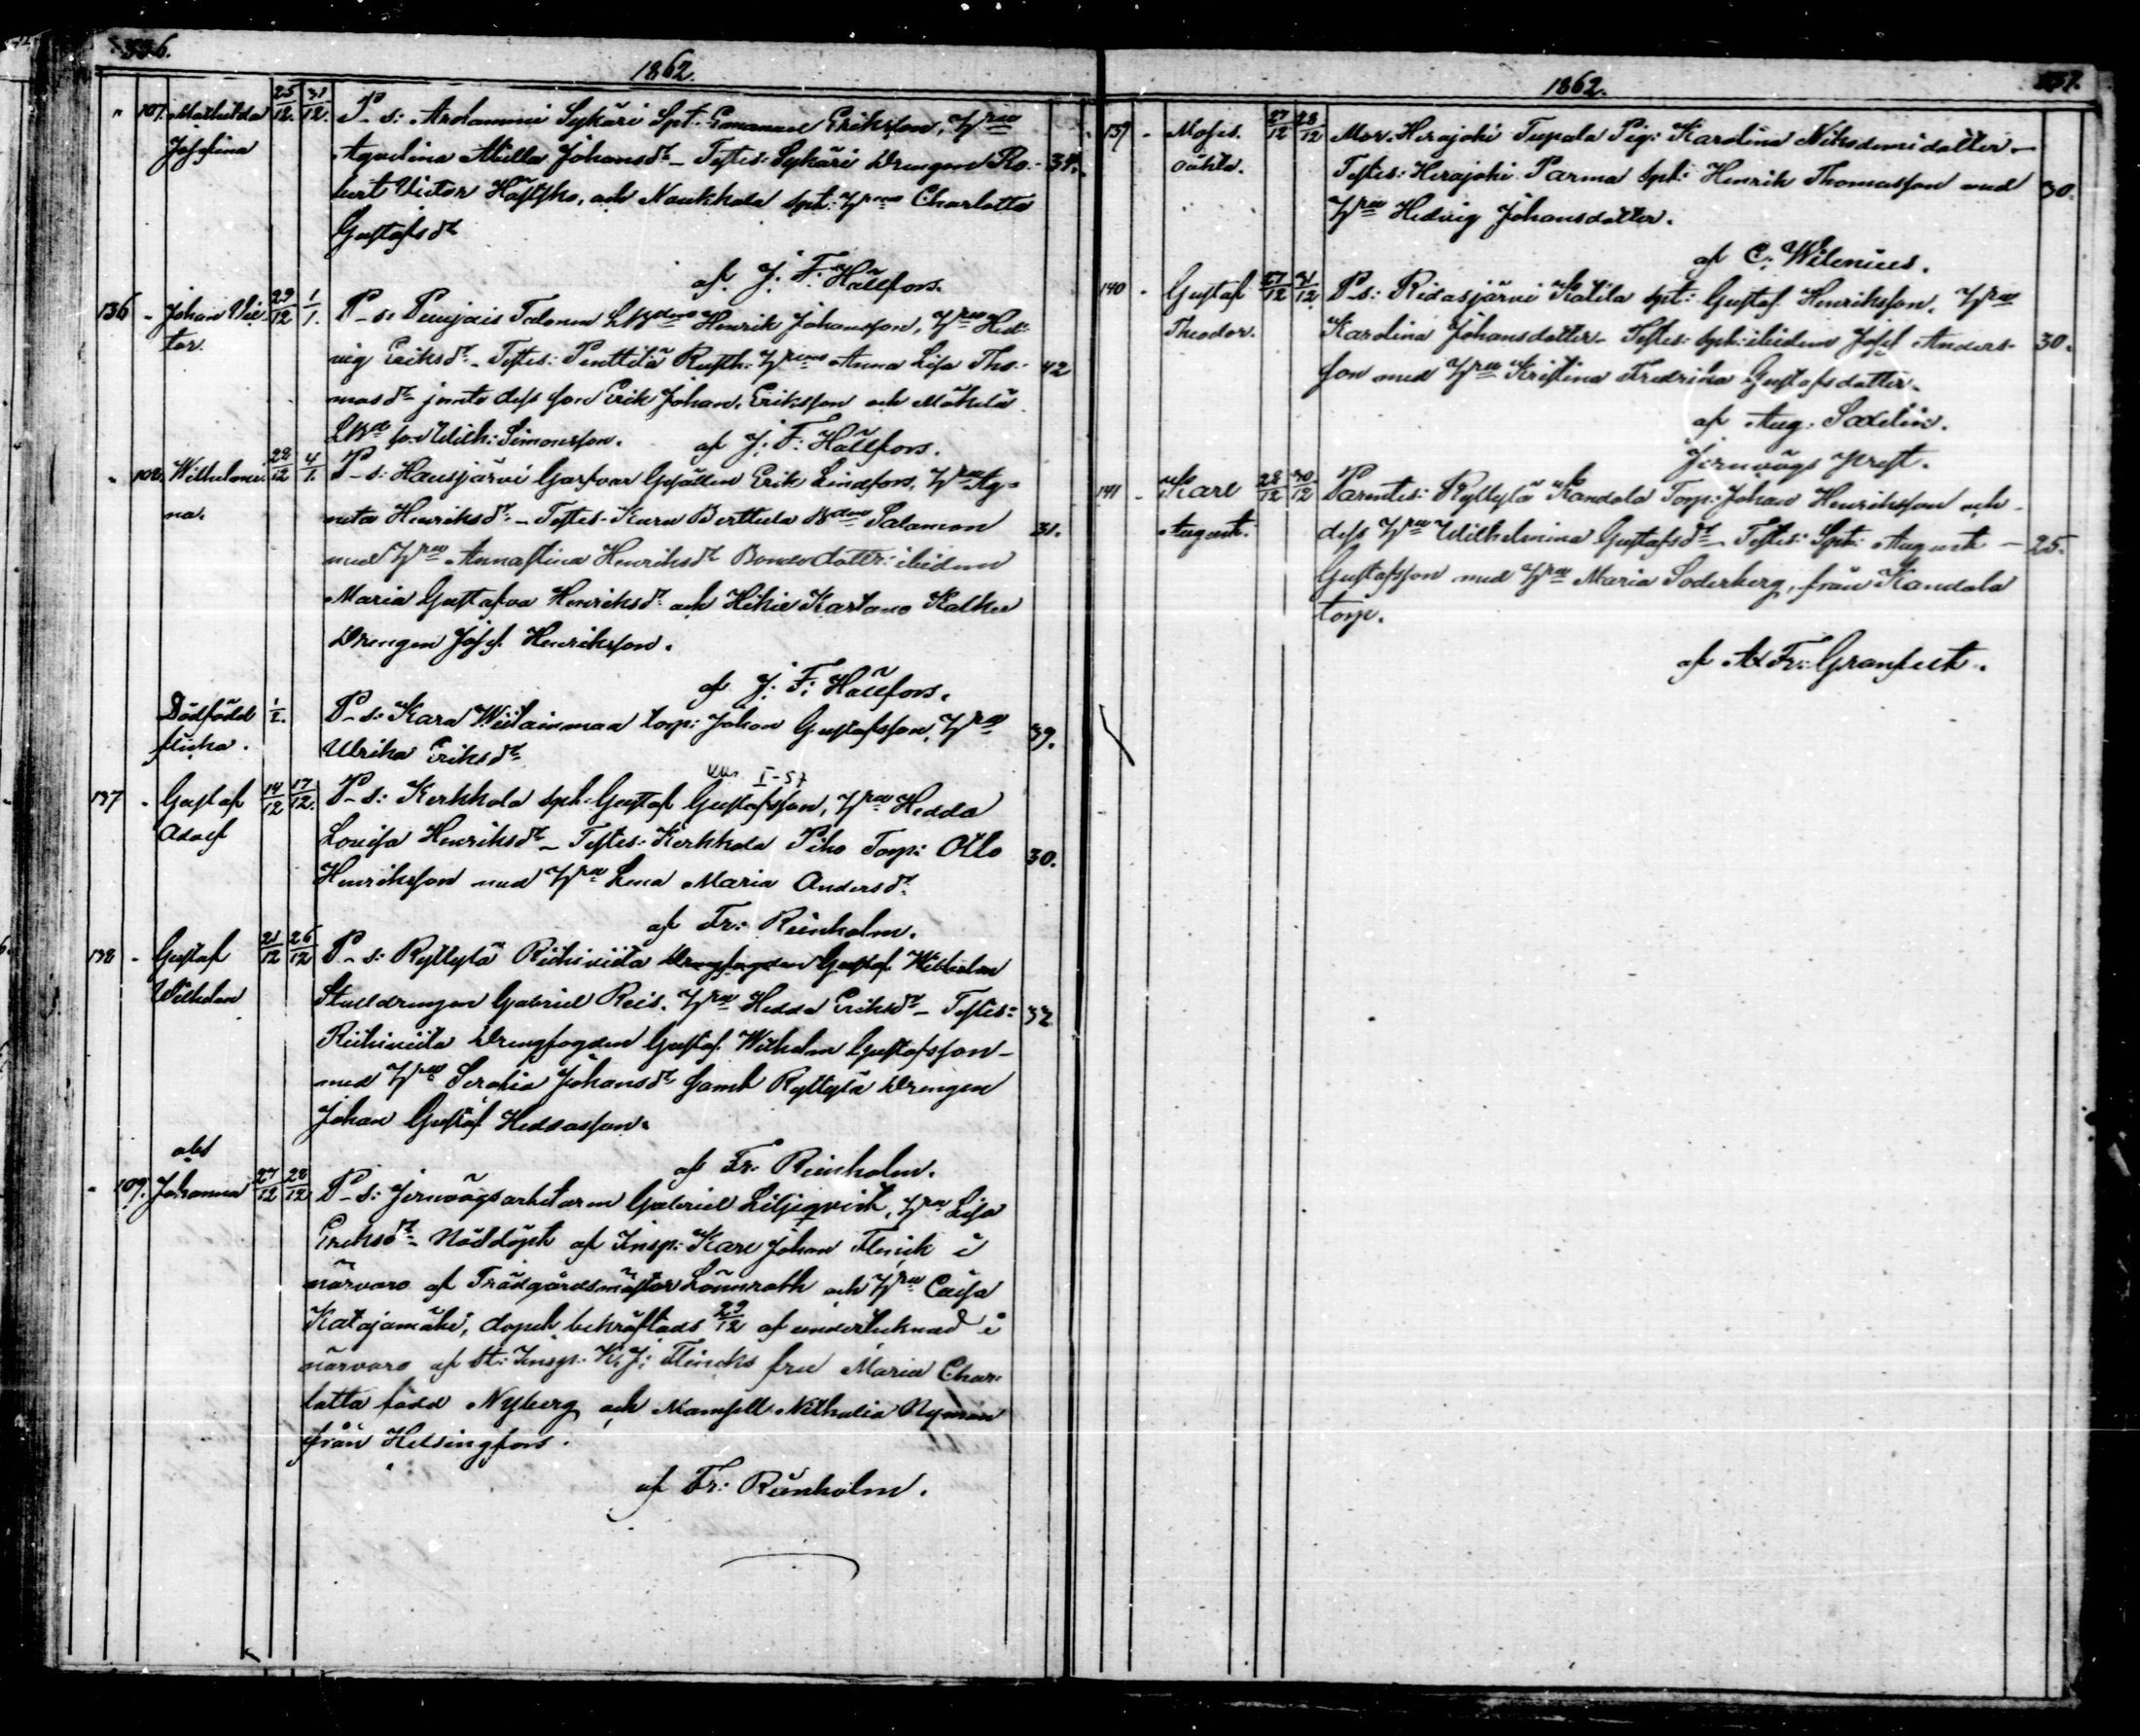 336.
1862.
" 107. Mathilda 25/12 31/12. P-s: Arolammi Sykäri Spt: Emanuel Eriksson, H:ru
Josefina Agvelina Ulla Johansdr - Testes: Sykäri Drengen Ro- 34.
bert Victor Hästsko, och Naukkala spt: H:ru Charlotta
Gustafsdr
af J. F. Hällfors.
136 - Johan Vic- 29/12 1/1. P-s: Penijais Talonen LBdn Henrik Johansson, H:ru Hed-
tor. vig Eriksdr - Testes: Penttilä Rusth: H:ru Anna Lisa Tho- 42
masdr jemte dess son Erik Johan Eriksson och Mäkelä
LBd son Wilh: Simonsson. af J. F. Hällfors.
" 108. Wilhelmi- 28/12 4/1. P-s: Hausjärvi Garfvar Gesällen Erik Lindfors, H:ru Ag-
na. neta Henriksdr - Testes: Kuru Berttula Bdn Salomon 31.
med H:ru Annastina Henriksdr Bonde dottr: ibidem
Maria Gustafva Henriksdr och Hikiä Kartano
Drengen Josef Henriksson.
af J: F: Hällfors.
Dödfödd P-s: Kara Wiitainmaa torp: Johan Gustafsson, H:ru 39.
flicka. Ulrika Eriksdr
I-57
137 - Gustaf 14/12 17/12. P-s: Kerkkola spt: Gustaf Gustafsson, H:ru Hedda
Adolf Lovisa Henriksdr - Testes: Kerkkola Piho Torp: Otto 30.
Henriksson med H:ru Lena Maria Andersdr
af Fr: Reinholm.
138 - Gustaf 21/12 26/12 P-s: Ryttylä Riihiviita Drengfogden Gustaf Wilhelm
Wilhelm Stalldrengen Gabriel Reis. H:ru Hedda Eriksdr - Testes: 32
Riihiviita Drengfogden Gustaf Wilhelm Gustafsson -
med H:ru Serafia Johansdr samt Ryttylä Drengen
Johan Gustaf Heddasson.
af Fr: Reinholm.
" 109. Johanna 27/12 28/12 P-s: Jernvägsarbetaren Gabriel Liljeqvist, H:ru Lisa
Eriksdr - Nöddöpt af Insp: Karl Johan Flinck i
närvaro af Trädgårdsmästar Lönnroth och H:ru Caisa
Katajamäki, dopet bekräftads 29/12 af undertecknad i
närvaro af St: Insp: K. J: Flincks fru Maria Char-
lotta född Nyberg och Mamsell Nathalia Nyman
från Helsingfors.
af Fr: Reinholm.
1862. 337.
139 - Moses. 27/12 28/12 Mor. Herajoki Tupala Pig: Karolina Nikodemidotter -
oäkta. Testes: Herajoki Parma spt: Henrik Thomasson med 30.
H:ru Hedvig Johansdotter.
af C: Wilenius.
140 - Gustaf 27/12 31/12 P-s: Ridasjärvi Kalila spt: Gustaf Henriksson, H:ru
Theodor. Karolina Johansdotter - Testes: spt: ibidem Josef Anders- 30.
son med H:ru Kristina Fredrika Gustafsdotter.
af Aug. Saxelin.
Jernvägs prest.
141 - Karl 28/12 30/12 Parentes: Ryttylä Kandola Torp: Johan Henriksson och
August. dess H:ru Wilhelmina Gustafsdr - Testes: Spt: August - 25.
Gustafsson med H:ru Maria Söderberg, från Kandola
torp.
af Ax Fr: Granfelt.